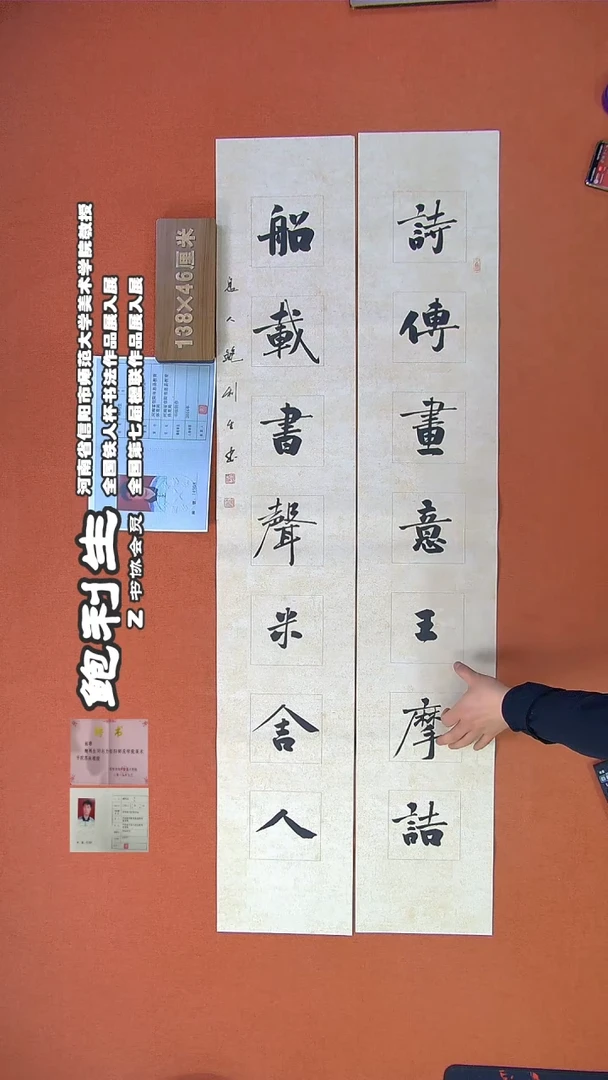 詩傳畫意王摩詰
船載書聲米舍人
息人鮑利生書
138×46厘米
河南省信阳市师范大学美术学院教授
全国铁人杯书法作品展入展
全国第七届楹联作品展入展
鲍利生
Z书协会员